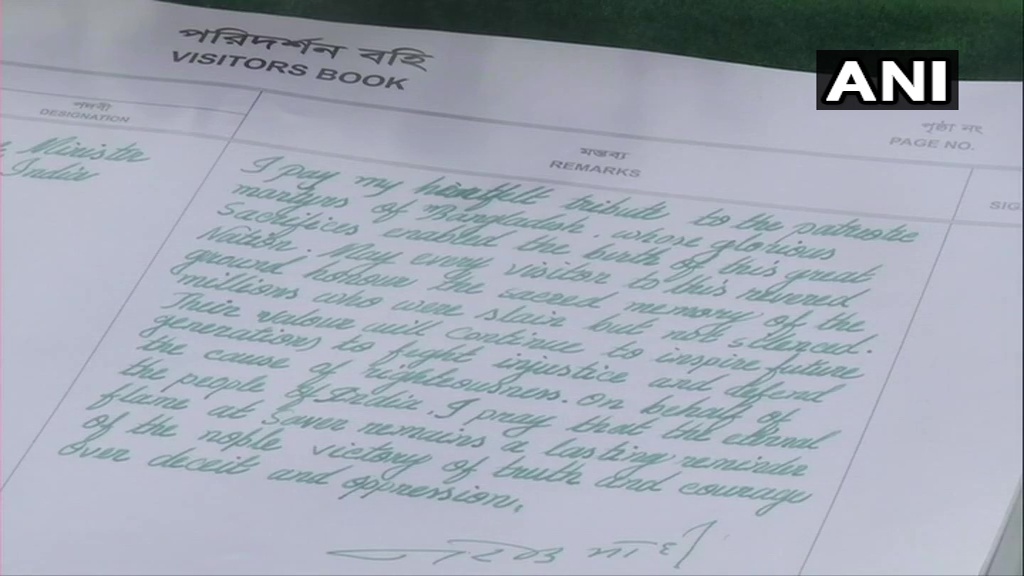 পরিদর্শন বহি
VISITORS BOOK
ANI
পদবী
DESIGNATION
মন্তব্য
REMARKS
পৃষ্ঠা নং
PAGE NO.
SIG
Minister
India
I pay my heartfelt tribute to the patriotic
martyrs of Bangladesh, whose glorious
sacrifices enabled the birth of this great
Nation. May every visitor to this revered
ground honour the sacred memory of the
millions who were slain but not silenced.
Their valour will continue to inspire future
generations to fight injustice and defend
the cause of righteousness. On behalf of
the people of India, I pray that the eternal
flame at Saver remains a lasting reminder
of the noble victory of truth and courage
over deceit and oppression.